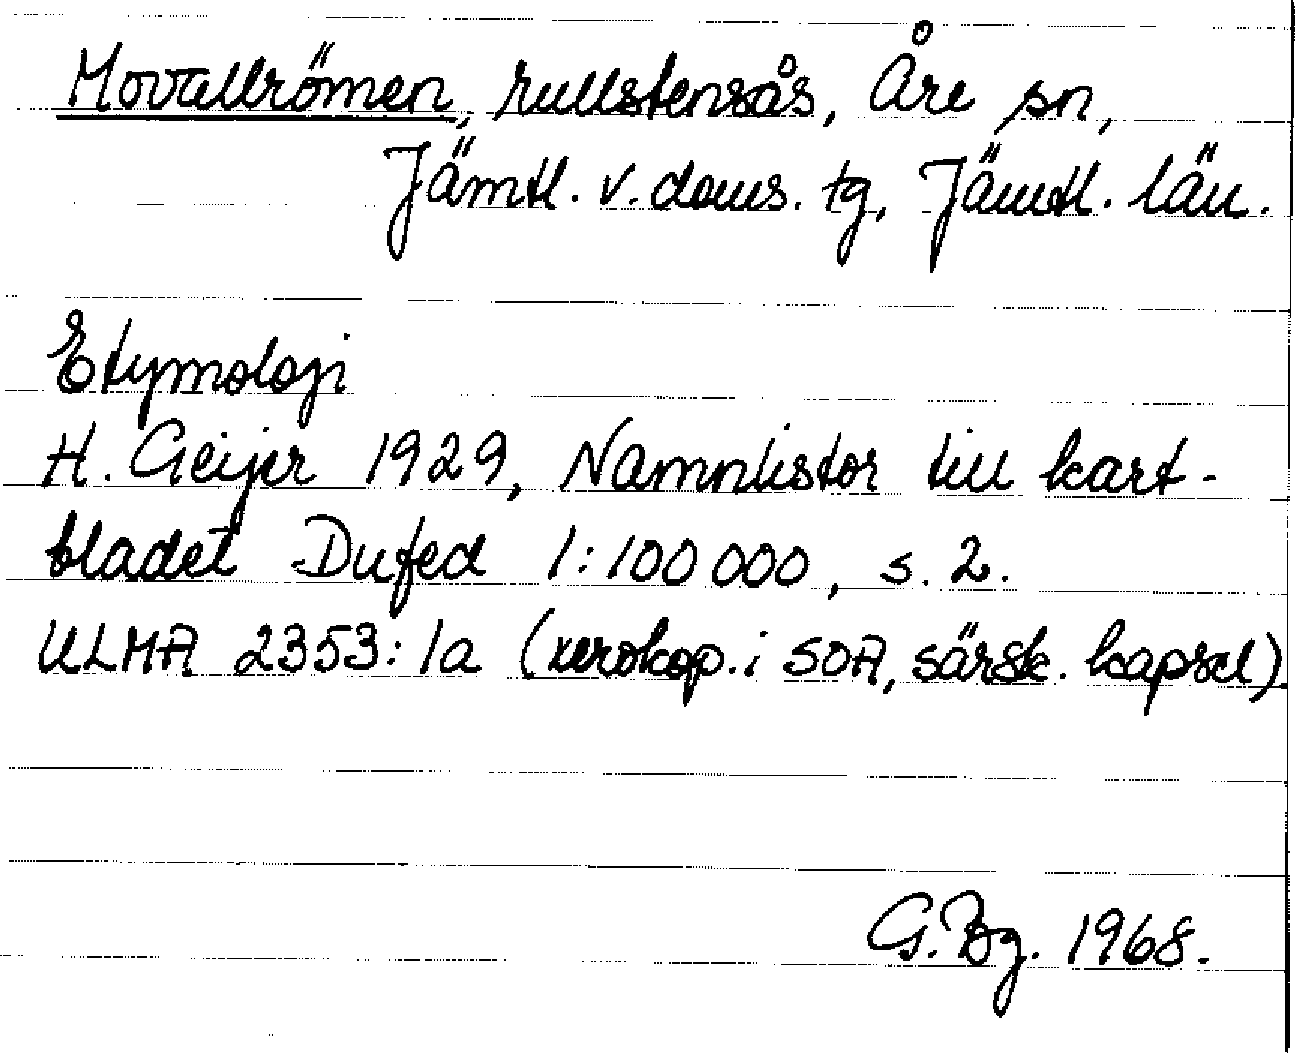 Movallrömen, rullstensås, Åre sn,
Jämtl. v. doms. tg, Jämtl. län.
Etymologi
H. Geijer 1929, Namnlistor till kart-
bladet Dufed 1:100 000, s. 2.
ULMA 2353:1a (xerokop. i SOA, särsk. kapsel).
G. Bg. 1968.